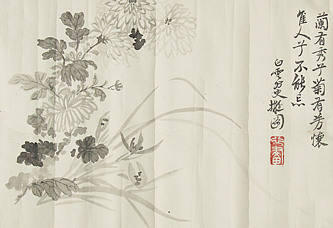 蘭有秀兮菊有芳懷
佳人兮不能忘
白雲